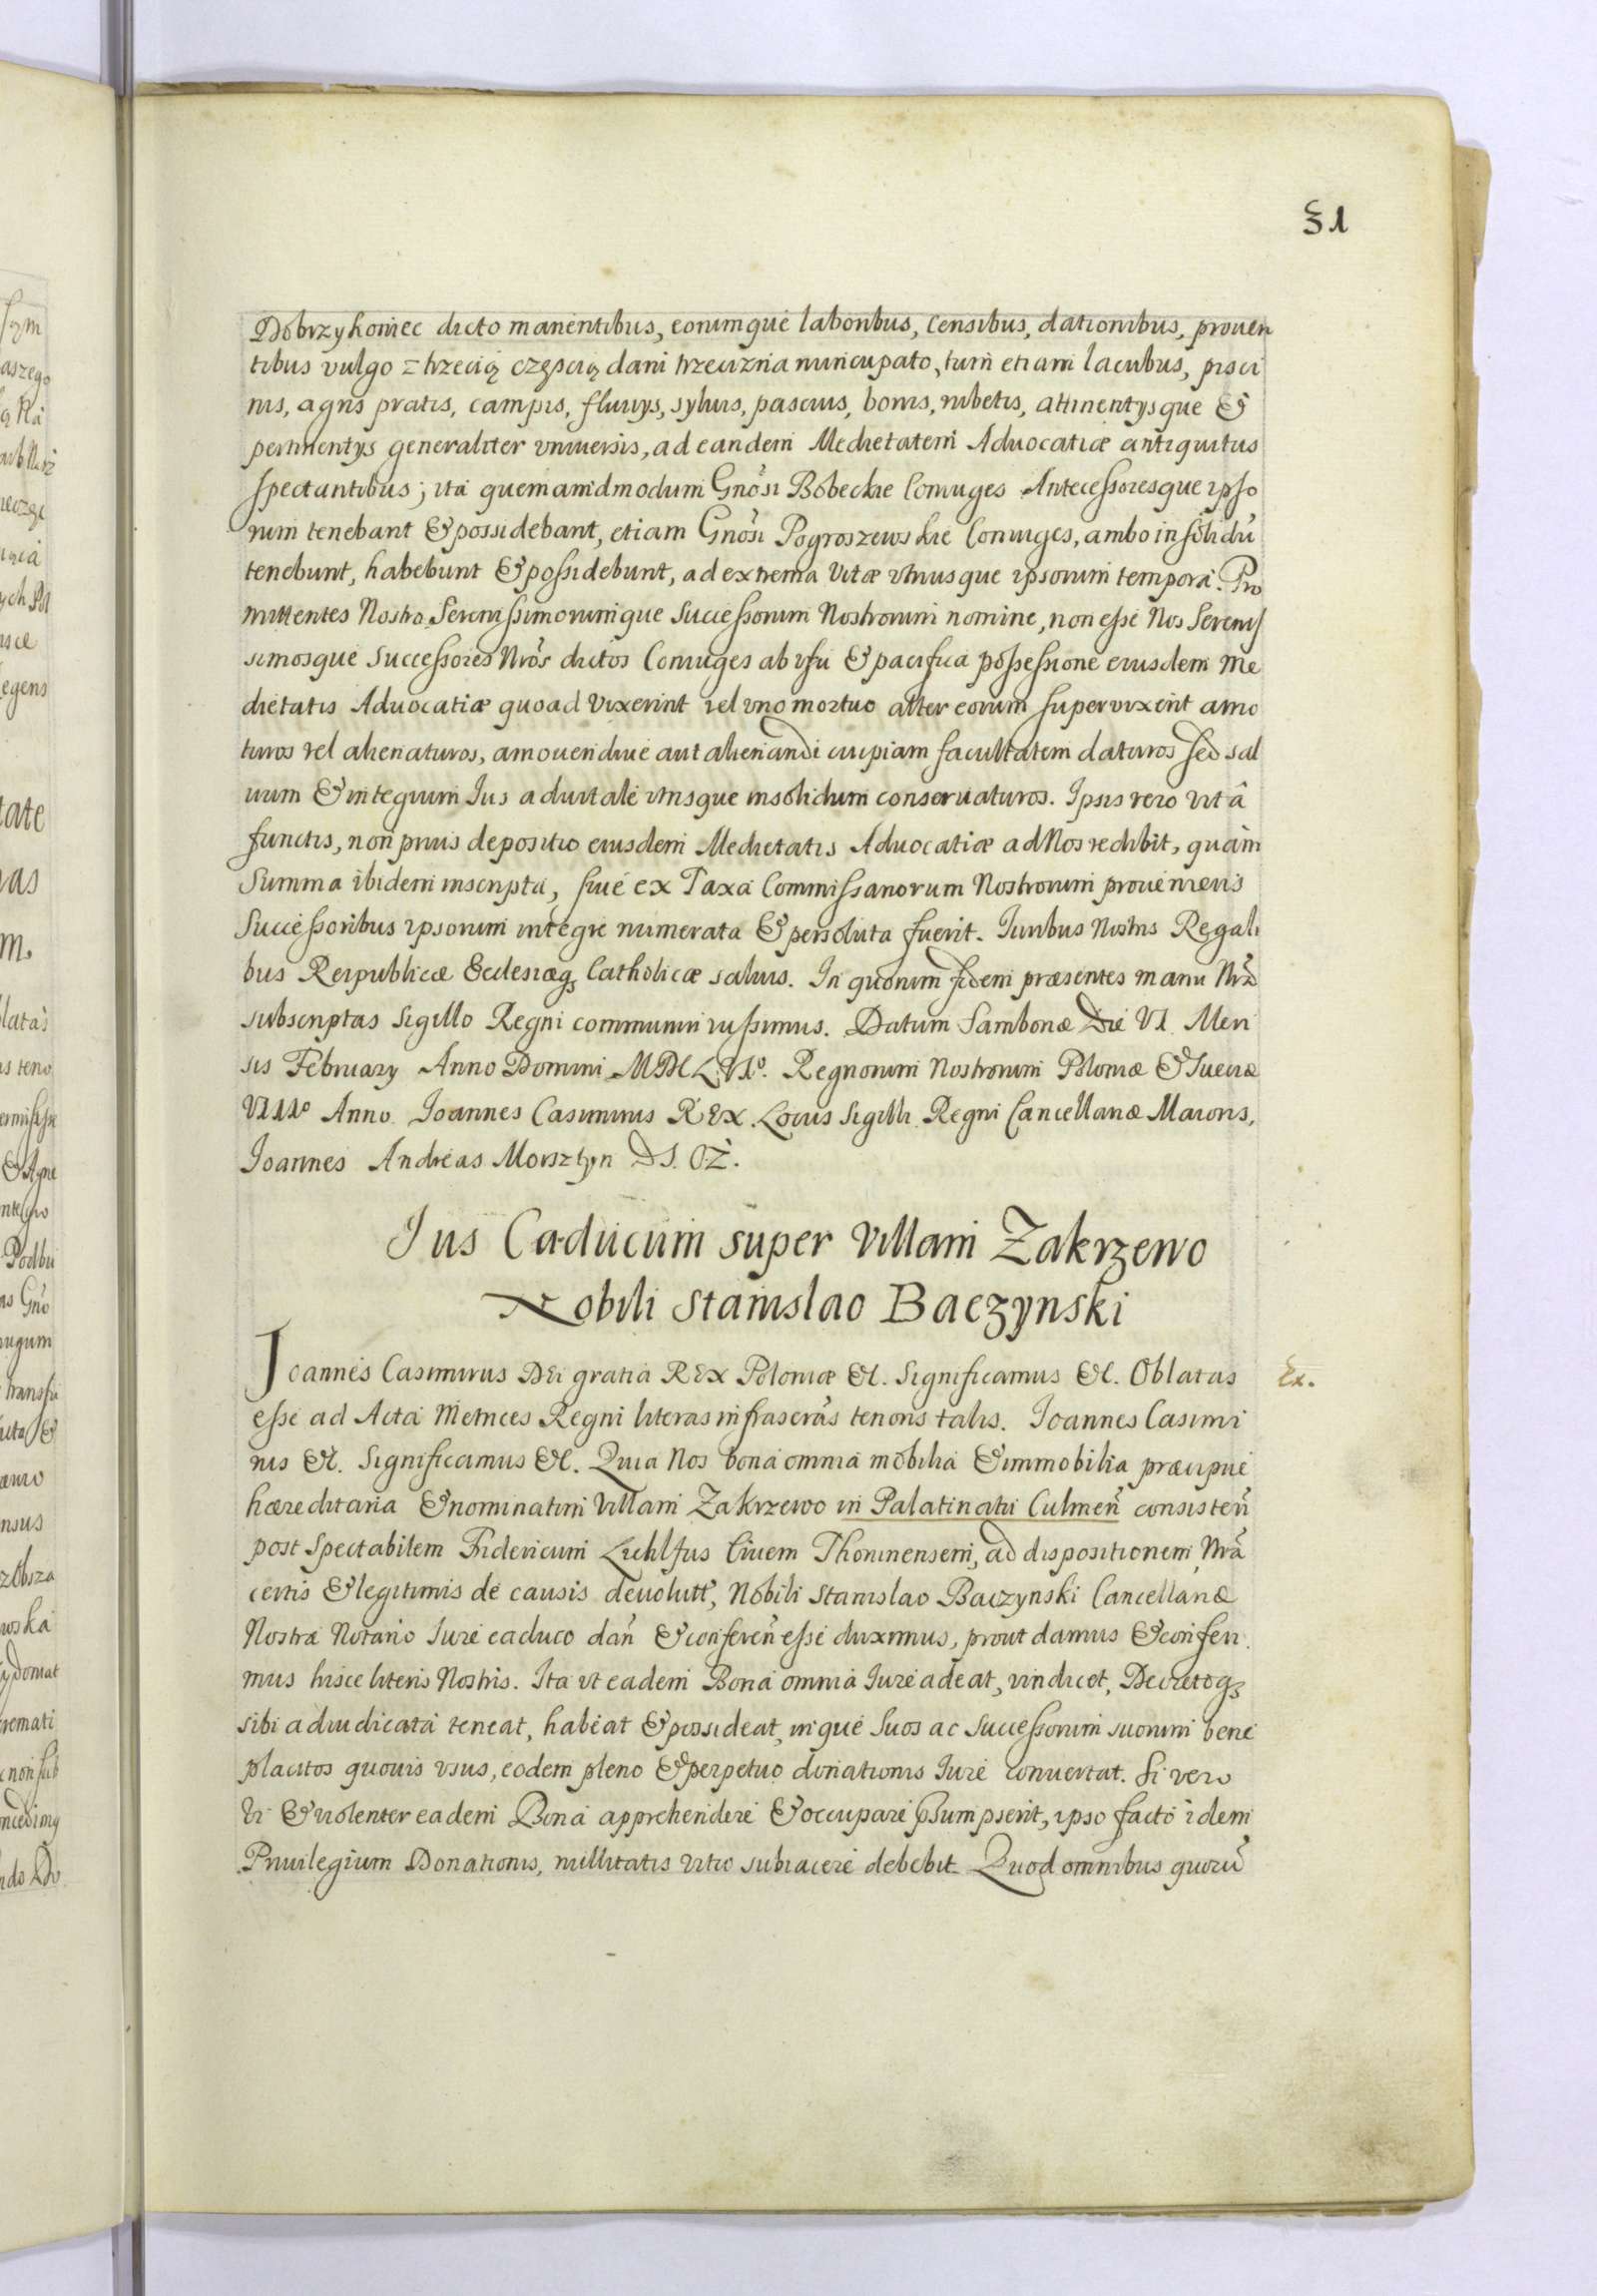 31
Dobrzykoniec dicto manentibus, eorumque laboribus, censibus, dationibus, proven
tibus vulgo z trzecią częscią dani trzecizna nuncupato, tum etiam lacubus, pisci
nis, agris pratis, campis, fluvys, sylvis, pascuis, bonis, rubetis, attinentysque &
pertinentys generaliter vniuersis, ad eandem Medietatem Aduocatiæ antiquitus
spectantibus; ita quemamdmodum Gnosi Bobeckie Coniuges Antecessoresque ipso
rum tenebant & possidebant, etiam Gnosi Pogroszewskie Coniuges, ambo in solidū
tenebunt, habebunt & possidebunt, ad extrema Vitæ vtriusque ipsorum tempora. Pro
mittentes Nostro Serenissimorumque Successorum Nostrorum nomine, non esse Nos Serenis
simosque Successores Nros dictos Coniuges ab vsu & pacifica possessione eiusdem Me
dietatis Aduocatiæ quoad Vixerint vel vno mortuo alter eorum supervixerit amo
turos vel alienaturos, amouendive aut alienandi cuipiam facultatem daturos sed sal
uum & integrum Ius aduitale vtrisque insolidum conseruaturos. Ipsis vero vitâ
functis, non prius depositio eiusdem Medietatis Aduocatiæ ad Nos redibit, quàm
Summa ibidem inscripta, siue ex Taxa Commissariorum Nostrorum proueniens
Successoribus ipsorum integre numerata & persoluta fuerit. Iuribus Nostris Regali
bus Reipublicæ Ecclesiæq; Catholicæ saluis. In quorum fidem præsentes manu Nrā
subscriptas Sigillo Regni communiri iussimus. Datum Samboriæ Die VI Men
sis February Anno Domini MDCLVIº. Regnorum Nostrorum Poloniæ & Sueciæ
VIIIº Anno. Joannes Casimirus REX. Locus Sigilli Regni Cancellariæ Maioris,
Joannes Andreas Morsztyn DS. OZ.
Jus Caducum super Villam Zakrzewo
Nobili Stanislao Baczynski
Joannes Casimirus DEi gratia REX Poloniæ &c. Significamus &c. Oblatas
Ex.
esse ad Acta Metrices Regni literas infrascrās tenoris talis. Joannes Casimi
rus &c. Significamus &c. Quia Nos bona omnia mobilia & immobilia præcipue
hæreditaria & nominatim Villam Zakrzewo in Palatinatu Culmeñ consisteñ
post Spectabilem Fridericum Lichlfus Ciuem Thoruniensem, ad dispositionem Nrā
certis & legitimis de causis deuolutt, Nobili Stanislao Baczynski Cancellariæ
Nostra Notario Iure caduco dañ & confereñ esse duximus, prout damus & conferi
mus hisce literis Nostris. Ita vt eadem Bona omnia Iure adeat, vindicet, Decretoq;
sibi adiudicata teneat, habeat & possideat, inque Suos ac Successorum suorum bene
placitos quouis vsus, eodem pleno & perpetuo donationis Iure conuertat. Si vero
Vi & violenter eadem Bona apprehendere & occupare p̄sumpserit, ipso facto idem
Priuilegium Donationis, nullitatis vitio subiacere debebit Quod omnibus quorū